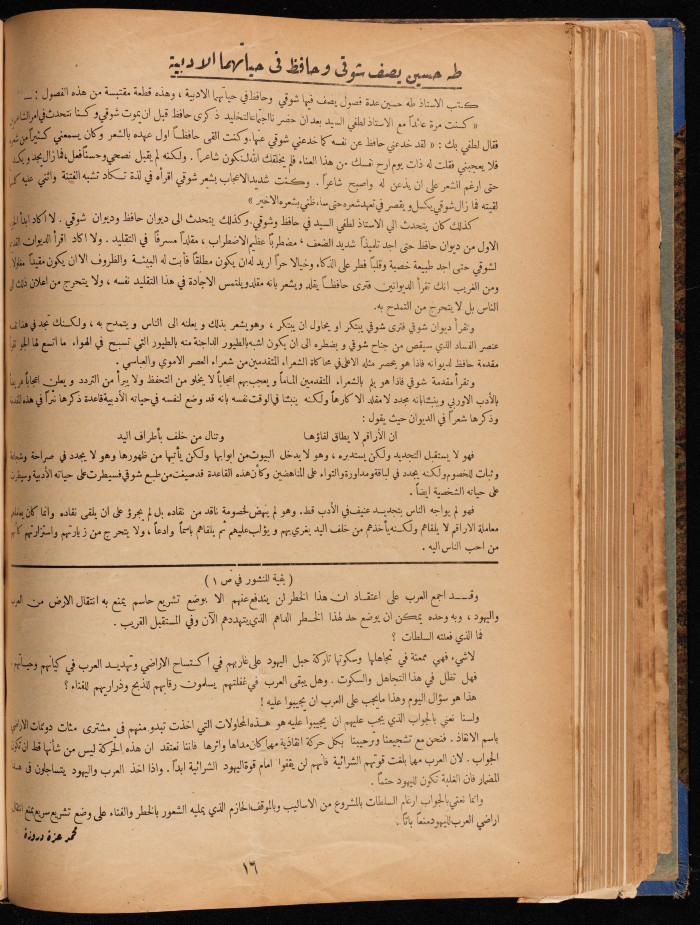 طه حسين يصف شوقي وحافظ في حياتهما الادبية
كتب الاستاذ طه حسين عدة فصول يصف فيها شوقي وحافظ في حياتهما الادبية ، وهذه قطعة مقتبسة من هذه الفصول : —
« كنت مرة عائداً مع الاستاذ لطفي السيد بعد ان حضر نا اجتماعا لتخليد ذكرى حافظ قبل ان يموت شوقي وكنا نتحدث في امر الشاعرين
فقال لطفي بك : « لقد خدعني حافظ عن نفسه كما خدعني شوقي عنها . وكنت القى حافظاً اول عهده بالشعر وكان يسمعني كثيراً من شعره
فلا يعجبني فقلت له ذات يوم ارح نفسك من هذا العناء فلم يخلقك الله لتكون شاعراً . ولكنه لم يقبل نصحي وحسناً فعل ، فما زال يجد ويكد
حتى ارغم الشعر على ان يذعن له واصبح شاعراً . وكنت شديد الاعجاب بشعر شوقي اقرأه في لذة تكاد تشبه الفتنة واثني عليه كلما
لقيته فما زال شوقي يكسل ويقصر في تعهد شعره حتى ساء ظني بشعره الاخير »
كذلك كان يتحدث الي الاستاذ لطفي السيد في حافظ وشوقي . وكذلك يتحدث الى ديوان حافظ وديوان شوقي . لا اكاد ابدأ الجزء
الاول من ديوان حافظ حتى اجد تلميذاً شديد الضعف ، مضطرباً عظيم الاضطراب ، مقلداً مسرفاً في التقليد . ولا اكاد اقرأ الديوان القديم
لشوقي حتى اجد طبيعة خصبة وقلباً فطر على الذكاء وخيالا حراً اريد له ان يكون مطلقاً فأبت له البيئة والظروف الا ان يكون مقيداً
ومن الغريب انك تقرأ الديوانين فترى حافظاً يقلد ويشعر بانه مقلد ويلتمس الاجادة في هذا التقليد نفسه ، ولا يتحرج من اعلان ذلك الى
الناس بل لا يتحرج من التمدح به .
وتقرأ ديوان شوقي فترى شوقي يبتكر او يحاول ان يبتكر ، وهو يشعر بذلك ويعلنه الى الناس ويتمدح به ، ولكنك تجد في هذا
عنصر الفساد الذي سيقص من جناح شوقي ويضطره الى ان يكون اشبه بالطيور الداجنة منه بالطيور التي تسبح في الهواء ما اتسع لها الجو
مقدمة حافظ لديوانه فاذا هو يحصر مثله الاعلى في محاكاة الشعراء المتقدمين من شعراء العصر الاموي والعباسي .
وتقرأ مقدمة شوقي فاذا هو يلم بالشعراء المتقدمين الماماً ويعجب بهم اعجاباً لا يخلو من التحفظ ولا يبرأ من التردد و يعلن اعجاباً
بالأدب الاوربي وينبئنا بانه مجدد لا مقلد الا كارهاً ولكنه ينبئنا في الوقت نفسه بانه قد وضع لنفسه في حياته الأدبية قاعدة ذكرها نثراً في هذه المقدمة
وذكرها شعراً في الديوان حيث يقول :
ان الأراقم لا يطاق لقاؤها وتنال من خلف بأطراف اليد
فهو لا يستقبل التجديد ولكن يستدبره ، وهو لا يدخل البيوت من ابوابها ولكن يأتيها من ظهورها وهو لا يجدد في صراحة وشجاعة
وثبات للخصوم ولكنه يجدد في لباقة ومداورة والتواء على المناهضين وكأن هذه القاعدة قد صيغت من طبع شوقي فسيطرت على حياته الأدبية وسيطرت
على حياته الشخصية ايضاً .
فهو لم يواجه الناس بتجديد عنيف في الأدب قط . وهو لم ينهض لخصومة ناقد من نقاده بل لم يجرؤ على ان يلقى نقاده وانما كان يعاملهم
معاملة الاراقم لا يلقاهم ولكنه يأخذهم من خلف اليد يغري بهم و يؤلب عليهم ثم يلقاهم باسماً وادعاً ، ولا يتحرج من زيارتهم واستزارتهم كأنهم
من احب الناس اليه .
( بقية المنشور في ص ١ )
وقد اجمع العرب على اعتقاد ان هذا الخطر لن يندفع عنهم الا بوضع تشريع حاسم يمنع به انتقال الارض من العرب
واليهود ، وبه وحده يمكن ان يوضع حد لهذا الخطر الداهم الذي يتهددهم الآن وفي المستقبل القريب .
فما الذي فعلته السلطات ؟
لا شيء ، فهي ممعنة في تجاهلها وسكوتها تاركة حبل اليهود على غاربهم في اكتساح الاراضي وتهديد العرب في كيانهم وحياتهم .
فهل تظل في هذا التجاهل والسكوت . وهل يبقى العرب في غفلتهم يسامون رقابهم للذبح وذراريهم للفناء ؟
هذا هو سؤال اليوم وهذا ما يجب على العرب ان يجيبوا عليه !
ولسنا نعني بالجواب الذي يجب عليهم ان يجيبوا عليه هو هذه المحاولات التي اخذت تبدو منهم في مشترى مئات دونمات الاراضي
باسم الانقاذ . فنحن مع تشجيعنا وترحيبنا بكل حركة انقاذية مهما كان مداها واثرها فاننا نعتقد ان هذه الحركة ليس من شأنها قط ان تكون
الجواب . لان العرب مهما بلغت قوتهم الشرائية فانهم لن يقفوا امام قوة اليهود الشرائية ابداً . واذا اخذ العرب واليهود يتساجلون في هذا
المضمار فان الغلبة تكون لليهود حتماً .
وانما نعني بالجواب ارغام السلطات بالمشروع من الاساليب وبالموقف الحازم الذي يمليه الشعور بالخطر والفناء على وضع تشريع سريع يمنع انتقال
اراضي العرب لليهود منعاً باتاً .
محمد عزة دروزة
١٦